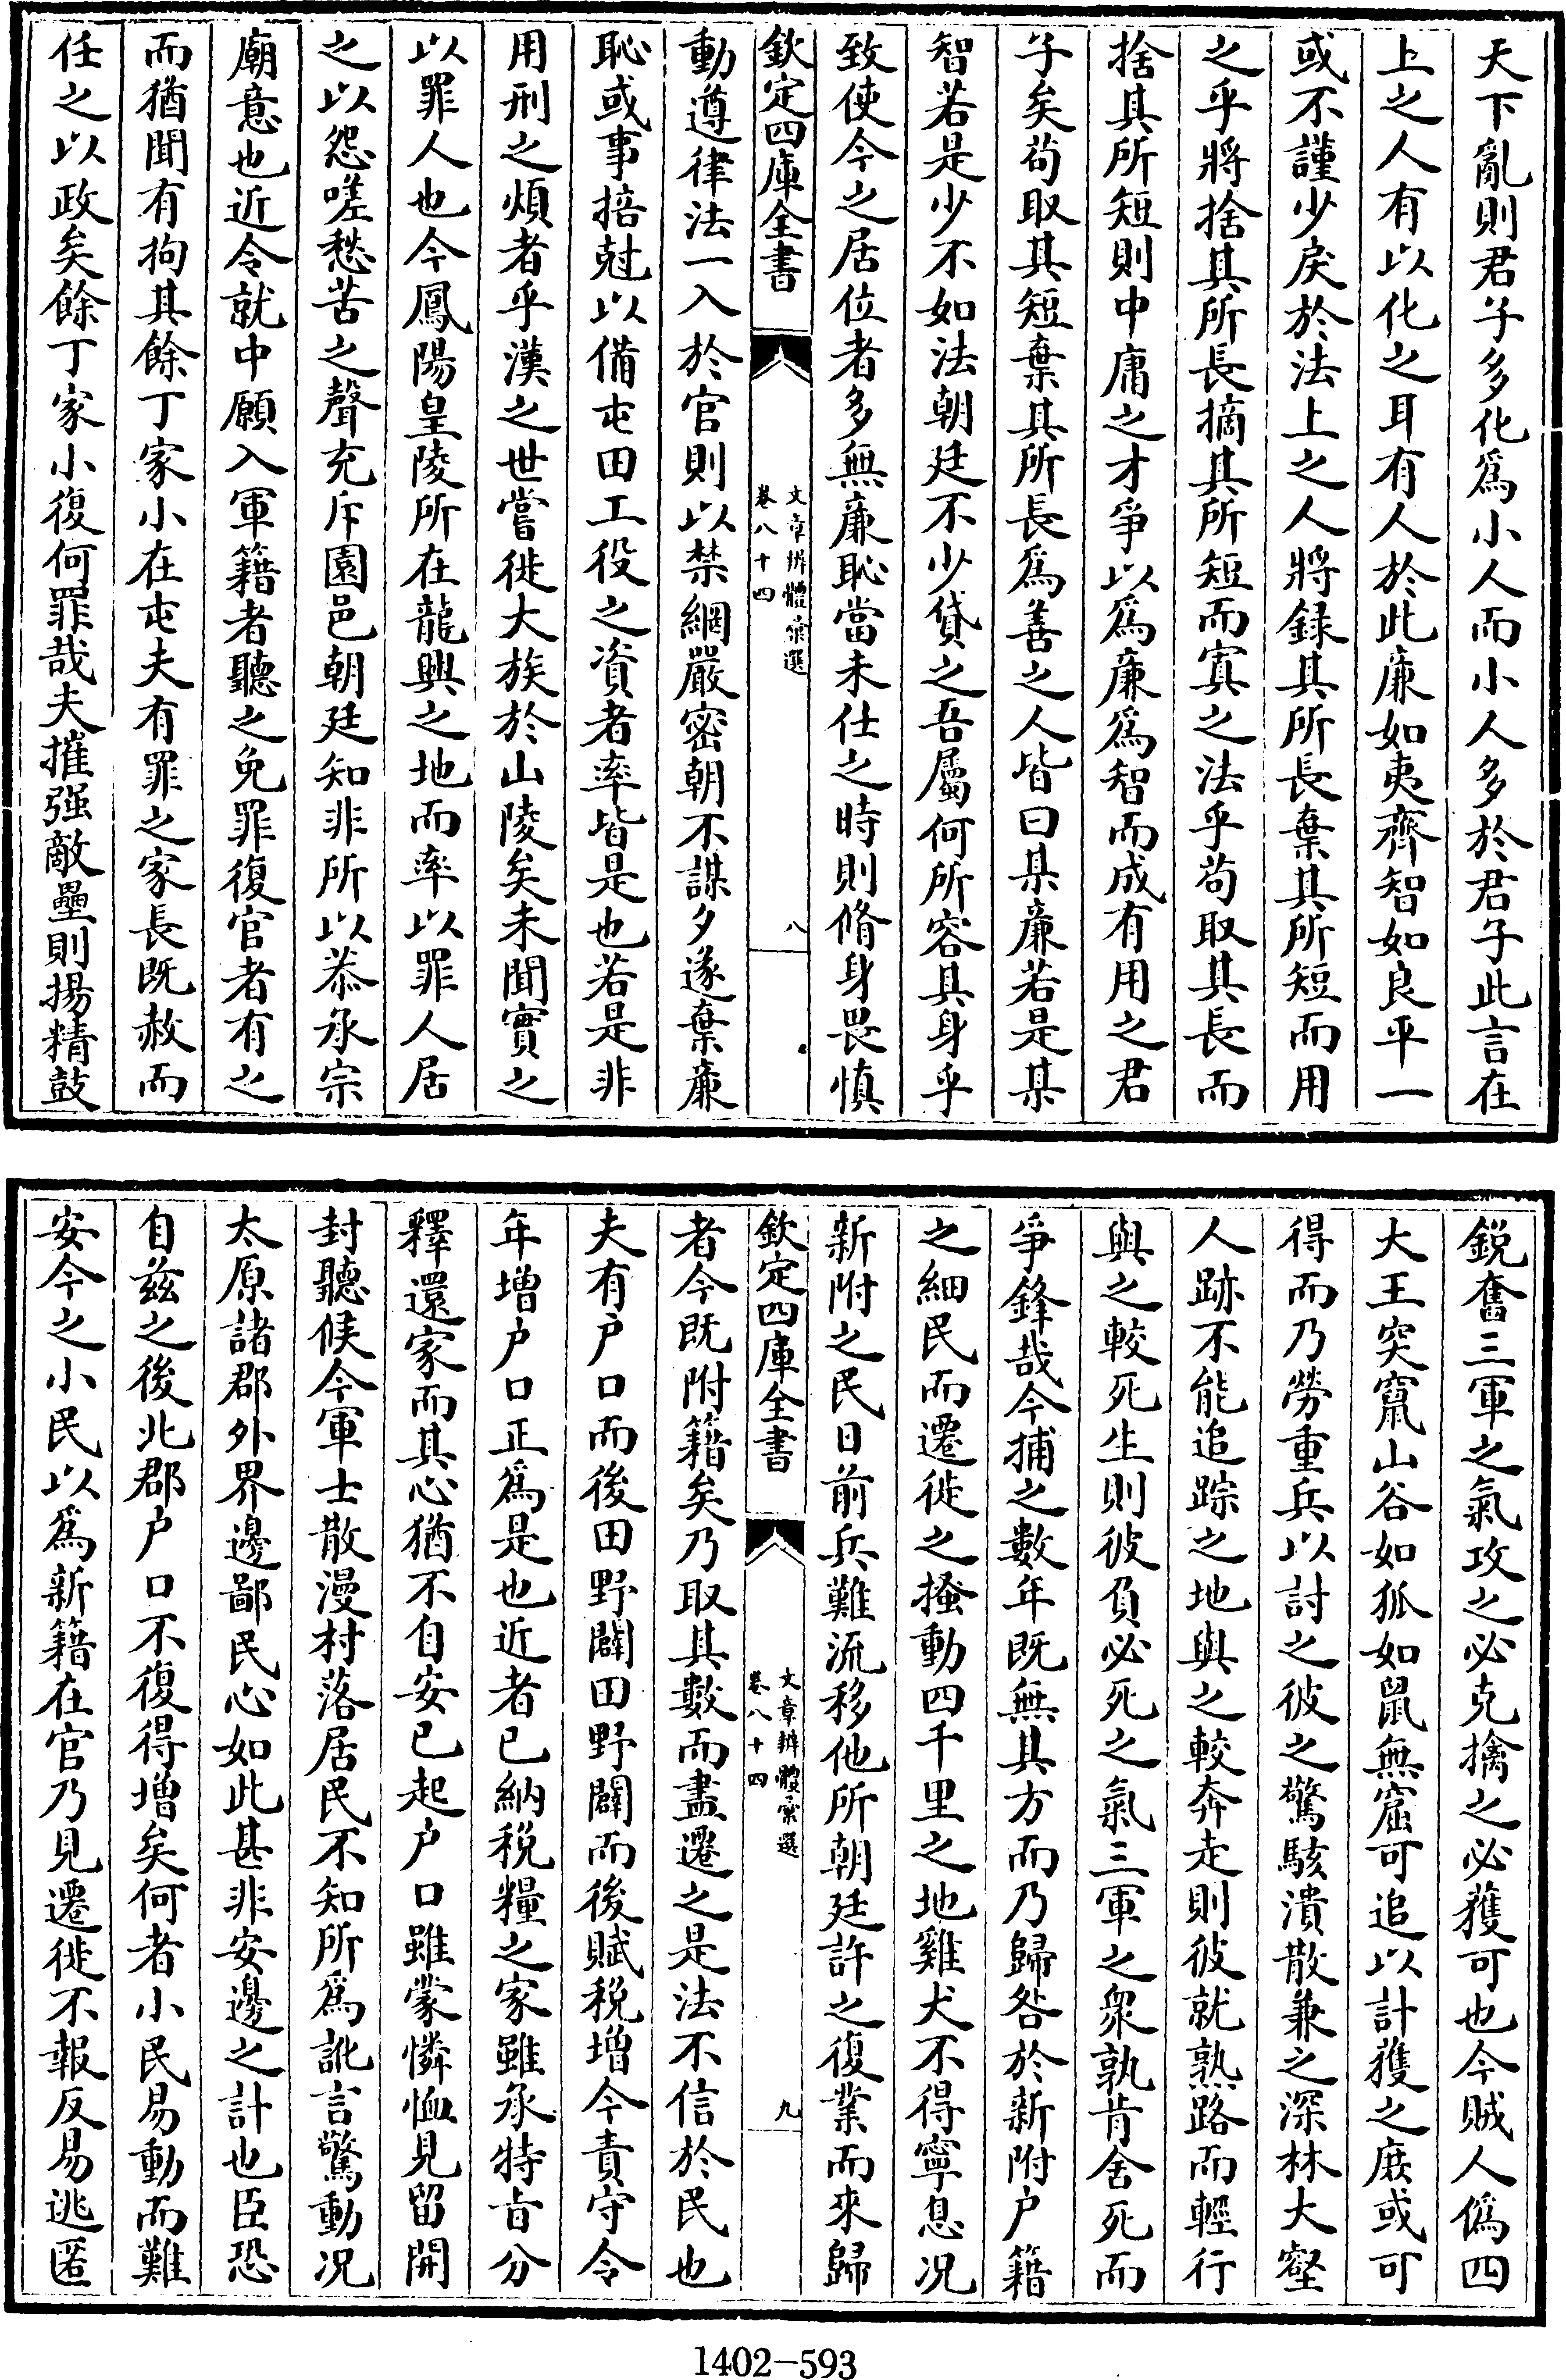 天下亂則君子多化爲小人而小人多於君子此言在
上之人有以化之耳有人於此廉如夷齊智如良平一
或不謹少戾於法上之人將録其所長棄其所短而用
之乎將捨其所長摘其所短而寘之法乎茍取其長而
捨其所短則中庸之才爭以爲廉爲智而成有用之君
子矣茍取其短棄其所長爲善之人皆曰某廉若是某
智若是少不如法朝廷不少貸之吾屬何所容其身乎
致使今之居位者多無廉恥當未仕之時則脩身畏慎
欽定四庫全書
文章辨體彚選
卷八十四
八
動遵律法一入於官則以禁網嚴密朝不謀夕遂棄廉
恥或事掊尅以備屯田工役之資者率皆是也若是非
用刑之煩者乎漢之世嘗徙大族於山陵矣未聞實之
以罪人也今鳳陽皇陵所在龍興之地而率以罪人居
之以怨嗟愁苦之聲充斥園邑朝廷知非所以恭承宗
廟意也近令就中願入軍籍者聽之免罪復官者有之
而猶聞有拘其餘丁家小在屯夫有罪之家長既赦而
任之以政矣餘丁家小復何罪哉夫摧强敵壘則揚精鼓
鋭奮三軍之氣攻之必克擒之必獲可也今賊人僞四
大王突竄山谷如狐如鼠無窟可追以計獲之庶或可
得而乃勞重兵以討之彼之驚駭潰散兼之深林大壑
人跡不能追踪之地與之較奔走則彼就熟路而輕行
與之較死生則彼負必死之氣三軍之衆孰肯舍死而
爭鋒哉今捕之數年既無其方而乃歸咎於新附户籍
之細民而遷徙之搔動四千里之地雞犬不得寧息况
新附之民日前兵難流移他所朝廷許之復業而來歸
欽定四庫全書
文章辨體彚選
卷八十四
九
者今既附籍矣乃取其數而盡遷之是法不信於民也
夫有户口而後田野闢田野闢而後賦税增今責守令
年增户口正爲是也近者已納税糧之家雖承特旨分
釋還家而其心猶不自安已起户口雖蒙憐恤見留開
封聽候今軍士散漫村落居民不知所爲訛言驚動况
太原諸郡外界邊鄙民心如此甚非安邊之計也臣恐
自兹之後北郡户口不復得增矣何者小民易動而難
安今之小民以爲新籍在官乃見遷徙不報反易逃匿
1402-593